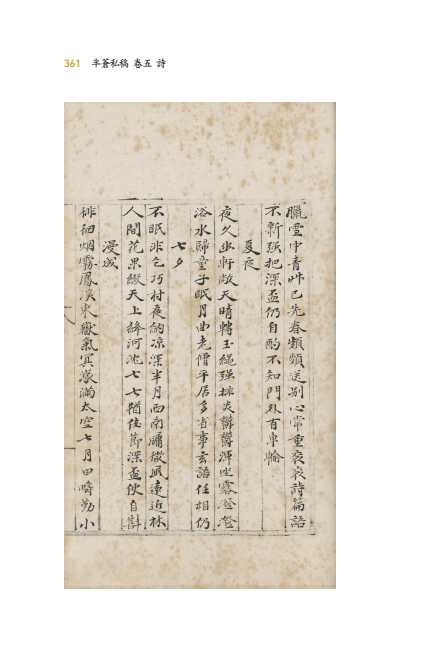 361 半蒼私稿 卷五 詩
臘雪中青艸已先春頻頻送別心常重衮衮詩篇語
不新强把深盃仍自酌不知門外百車輪
夏夜
夜久幽軒敞天晴轉玉繩强排炎鬱鬱渾坐露登登
浴水歸童子眠月曲老僧平居多省事玄語任相仍
七夕
不眠非乞巧村夜納凉深半月西南牖微風遠近林
人間花果綴天上絳河沈七七猶佳節深盃便自斟
漫成
徘徊烟霧鳳溪東嶽氣冥濛滿太空七月田疇勤小